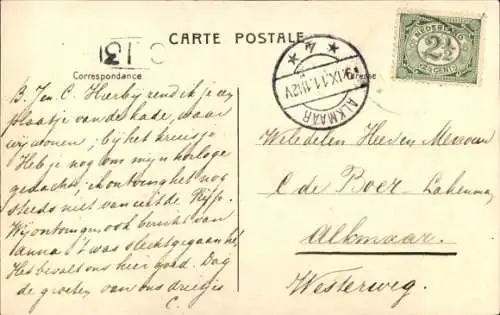 CARTE POSTALE
Correspondance
Adresse
NEDERLAND
2½
CENT
ALKMAAR
4
B. J en C. Hierbij zend ik je een
plaatje van de kade, waar
wij wonen; bij het kruisje.
Heb je nog om mijn horloge
gedacht; ik ontving het nog
steeds niet van uit de Rijp.
Wij ontvingen ook bericht van
Anna, 't was slecht gegaan hé.
Het bevalt ons hier goed. Dag
de groeten van ons drietjes
C.
Weledelen Heer en Mevrouw
C de Boer
Alkmaar.
Westerweg.